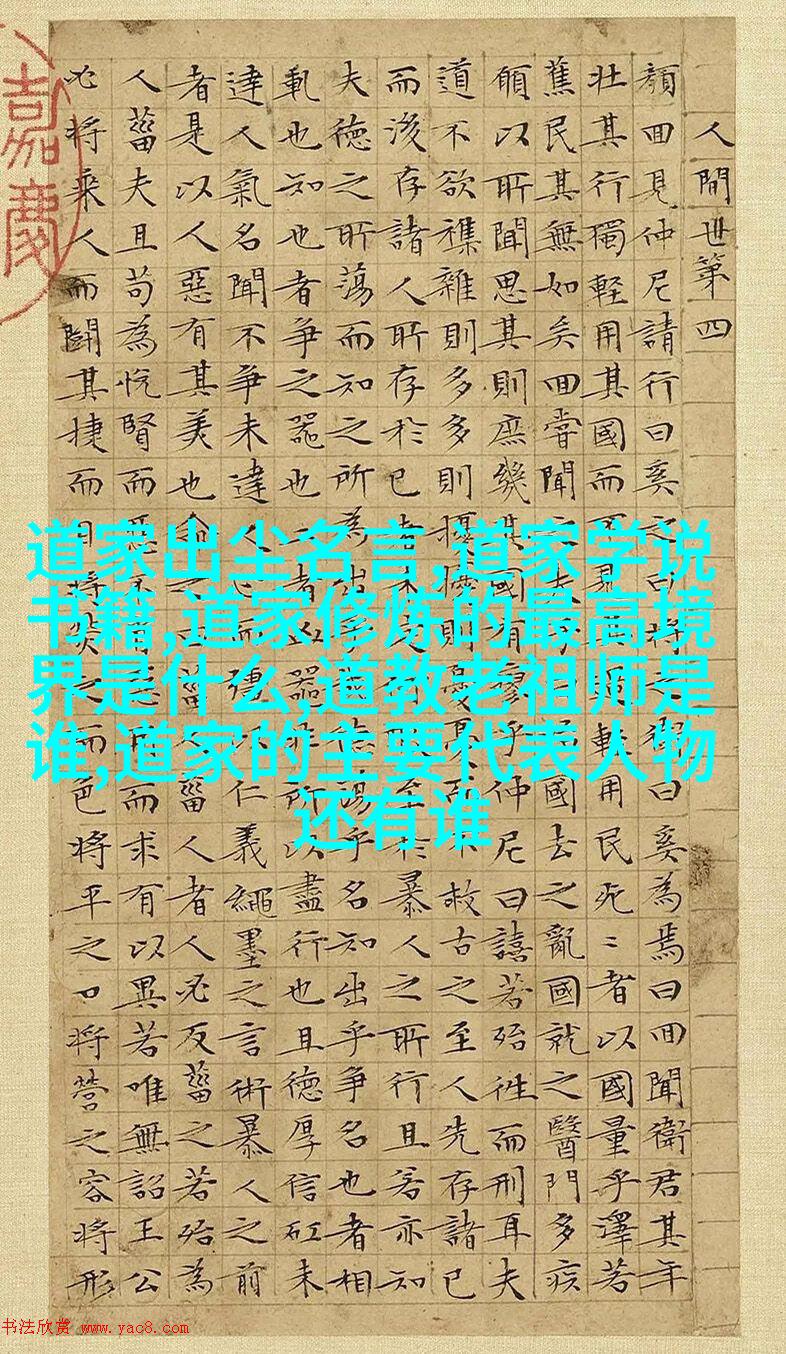 人間世第四
顏回見仲尼請行曰奚之曰將之衛曰奚為焉曰回聞衛君其年
壯其行獨輕用其國而不見其過輕用民死〻者以國量乎澤若
蕉民其無如矣回嘗聞之夫子曰治國去之亂國就之醫門多疾
願以所聞思其則庶幾其國有瘳乎仲尼曰譆若殆往而刑耳夫
道不欲襍雜則多多則擾擾則憂憂而不救古之至人先存諸已
而後存諸人所存於已者未定何暇至於暴人之所行且若亦知
夫德之所蕩而知之所為出乎哉德蕩乎名知出乎爭名也者相
軋也知也者爭之器也二者凶器非所以盡行也且德厚信矼未
達人氣名聞不爭未達人心而彊以仁義繩墨之言術暴人之前
者是以人惡有其美也命之曰菑人菑人者人必反菑之若殆為
人菑夫且苟為悅賢而惡不肖惡用而求有以異若唯無詔王公
必將乘人而鬭其捷而目將熒之而色將平之口將營之容將形
嘉慶
道家出尘名言,道家学说
书籍,道家修炼的最高境
界是什么,道教老祖师是
谁,道家的主要代表人物
还有谁
书法欣赏 www.yac8.com